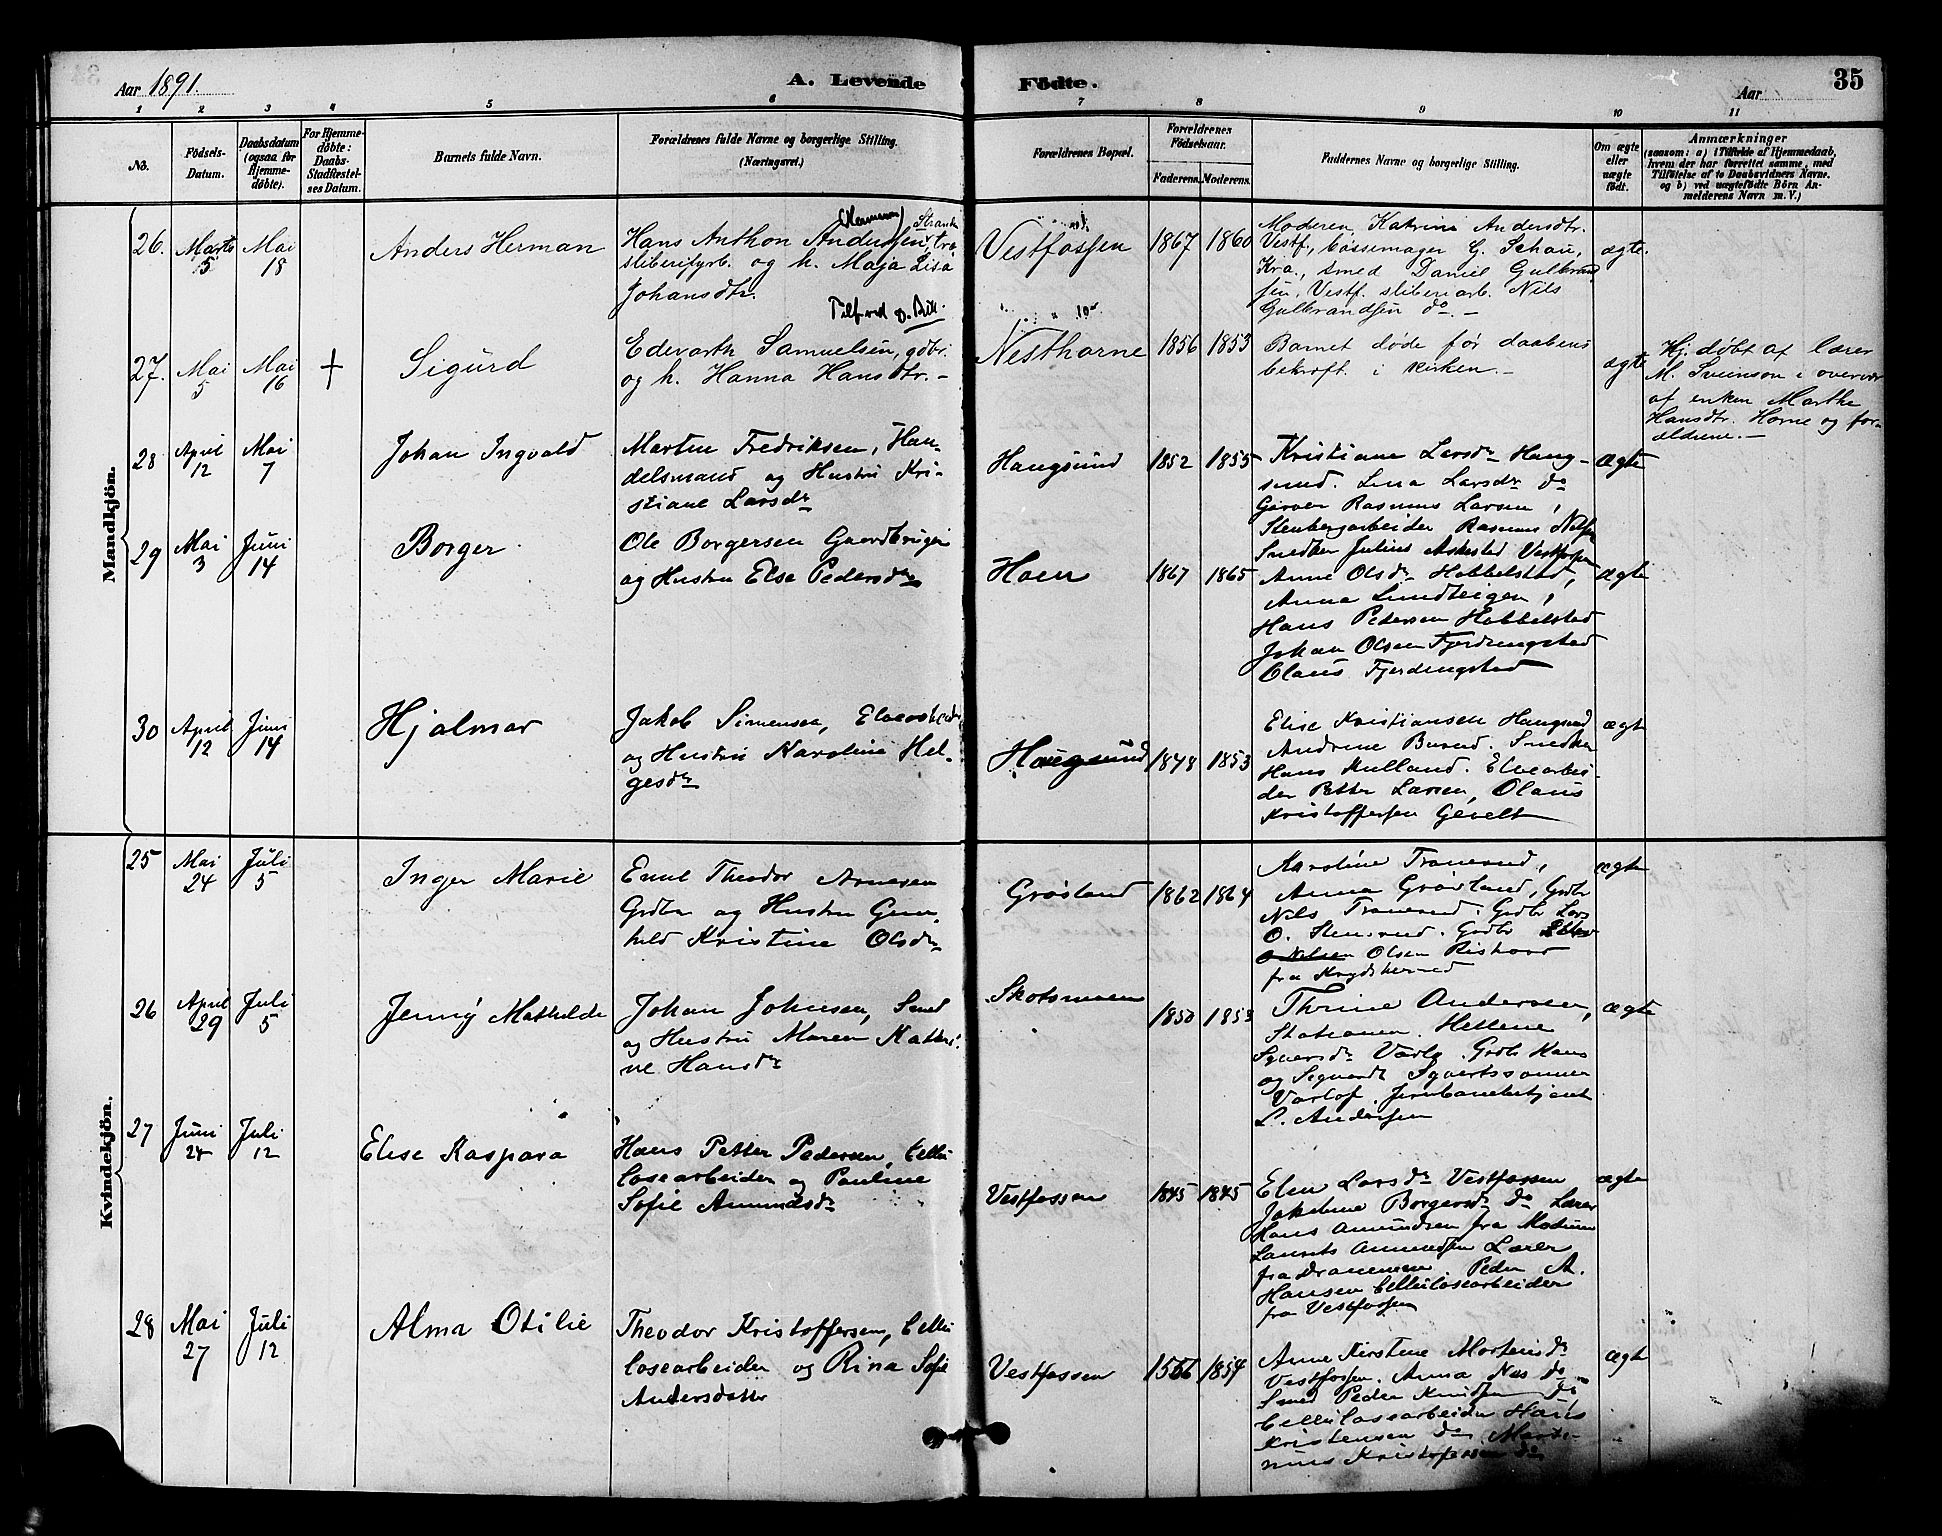 Aar 1891.
A. Levende
Födte.
Aar
35
1 2 3 4 5 6 7 8 9 10 11
No.
Födsels-
Datum.
Daabsdatum
(ogsaa for
Hjemme-
döbte).
For Hjemme-
döbte:
Daabs-
Stadfæstel-
ses Datum.
Barnets fulde Navn.
Forældrenes fulde Navne og borgerlige Stilling.
(Næringsvei.)
Forældrenes Bopæl.
Forældrenes
Födselsaar.
Faderens. Moderens.
Faddernes Navne og borgerlige Stilling.
Om ægte
eller
uægte
födt.
Anmærkninger
(saasom: a) i Tilfælde af Hjemmedaab,
hvem der har forrettet samme, med
Tilföielse af to Daabsvidners Navne.
og b) ved uægtefödte Börn An-
melderens Navn m. V.)
Mandkjön.
26.
Marts
5
Mai
18
Anders Herman
Hans Anthon Andersen
sliberifyrb. og h. Maja Lisa
Johansdtr.
Vestfossen
1867
1860
Moderen, Katrine Andersdtr.
Vestf., bössemager G. Schau,
Kra., smed Daniel Gulbrand
sen, Vestf. sliberiarb. Nils
Gulbrandsen do. –
ægte.
27.
Mai
5
Mai
16
+
Sigurd
Edevarth Samuelsen, gdbr.
og h. Hanna Hansdtr. –
Nesthorne
1856
1853
Barnet döde för daabens
bekræft. i kirken –
ægte
Hj. döbt af lærer
M. Sveinson i overvær
af enken Marthe
Hansdtr. Horne og for-
ældrene. –
28
April
12
Mai
7
Johan Ingvald
Martin Fredriksen, Han-
delsmand og Hustru Kri-
stiane Larsdr
Haugsund
1852
1855
Kristiane Larsdr Haug-
sund. Lina Larsdr do
Garver Rasmus Larsen,
Stenbergarbeider Rasmus Nilsen
Snedker Julius Askestad Vestfossen
Ægte
29
Mai
3
Juni
14
Borger
Ole Borgersen Gaardbruger
og Hustru Else Pedersdr
Hoen
1867
1865
Anne Olsdr Hobbelstad,
Anna Sundteigen,
Hans Pedersen Hobbelstad
Johan Olsen Fjerdingstad
Olaus Fjerdingstad
ægte
30
April
12
Juni
14
Hjalmar
Jakob Simensen,
og Hustru Karoline Hel-
gesdr
Haugsund
1848
1853
Elise Kristiansen Haugsund
Andrine Buerud. Snedker
Hans Kulland. Elvearbei-
der Petter Larsen, Olaus
Kristoffersen Gevelt
ægte
Kvindekjön.
25
Mai
24
Juli
5
Inger Marie
Emil Theodor Arnesen
Grdbr og Hustru Gun-
hild Kristine Olsdr
Grösland
1862
1864
Karoline Tranerud,
Anna Grösland, Grdbr
Nils Tranerud. Grdbr Lars
O. Stensrud. Grdbr
Olsen
fra Krydsherred
ægte
26
April
29
Juli
5
Jenny Mathilde
Johan Johnsen, Smed
og Hustru Maren Kathri-
ne Hansdr
Skotsmoen
1850
1853
Thrine Andersen,
Hellene
Syversdr Varlo. Grdbr Hans
og Sigvardt
Varlo. Jernbanebetjent
L. Andersen
ægte
27
Juni
24
Juli
12
Elise Kaspara
Hans Petter Pedersen, Cellu
losearbeider og Pauline
Sofie Amundsdr
Vestfossen
1845
1845
Elen Larsdr Vestfossen
Jokobine Borgersdr do Lærer
Hans Amundsen fra Modum
Laurits Amundsen Lærer
fra Drammen. Peder A.
Hansen Cellulosearbeider
fra Vestfossen
ægte
28
Mai
27
Juli
12
Alma Otilie
Theodor Kristoffersen, Cellu
losearbeider og Rina Sofie
Andersdatter
Vestfossen
1854
Anne Kirstine Mortensdr
Vestfossen. Anna Næs do
Smed Peder Knudsen do
Cellulosearbeider Hans
Kristensen do Marti-
nius Kristofersen do
ægte